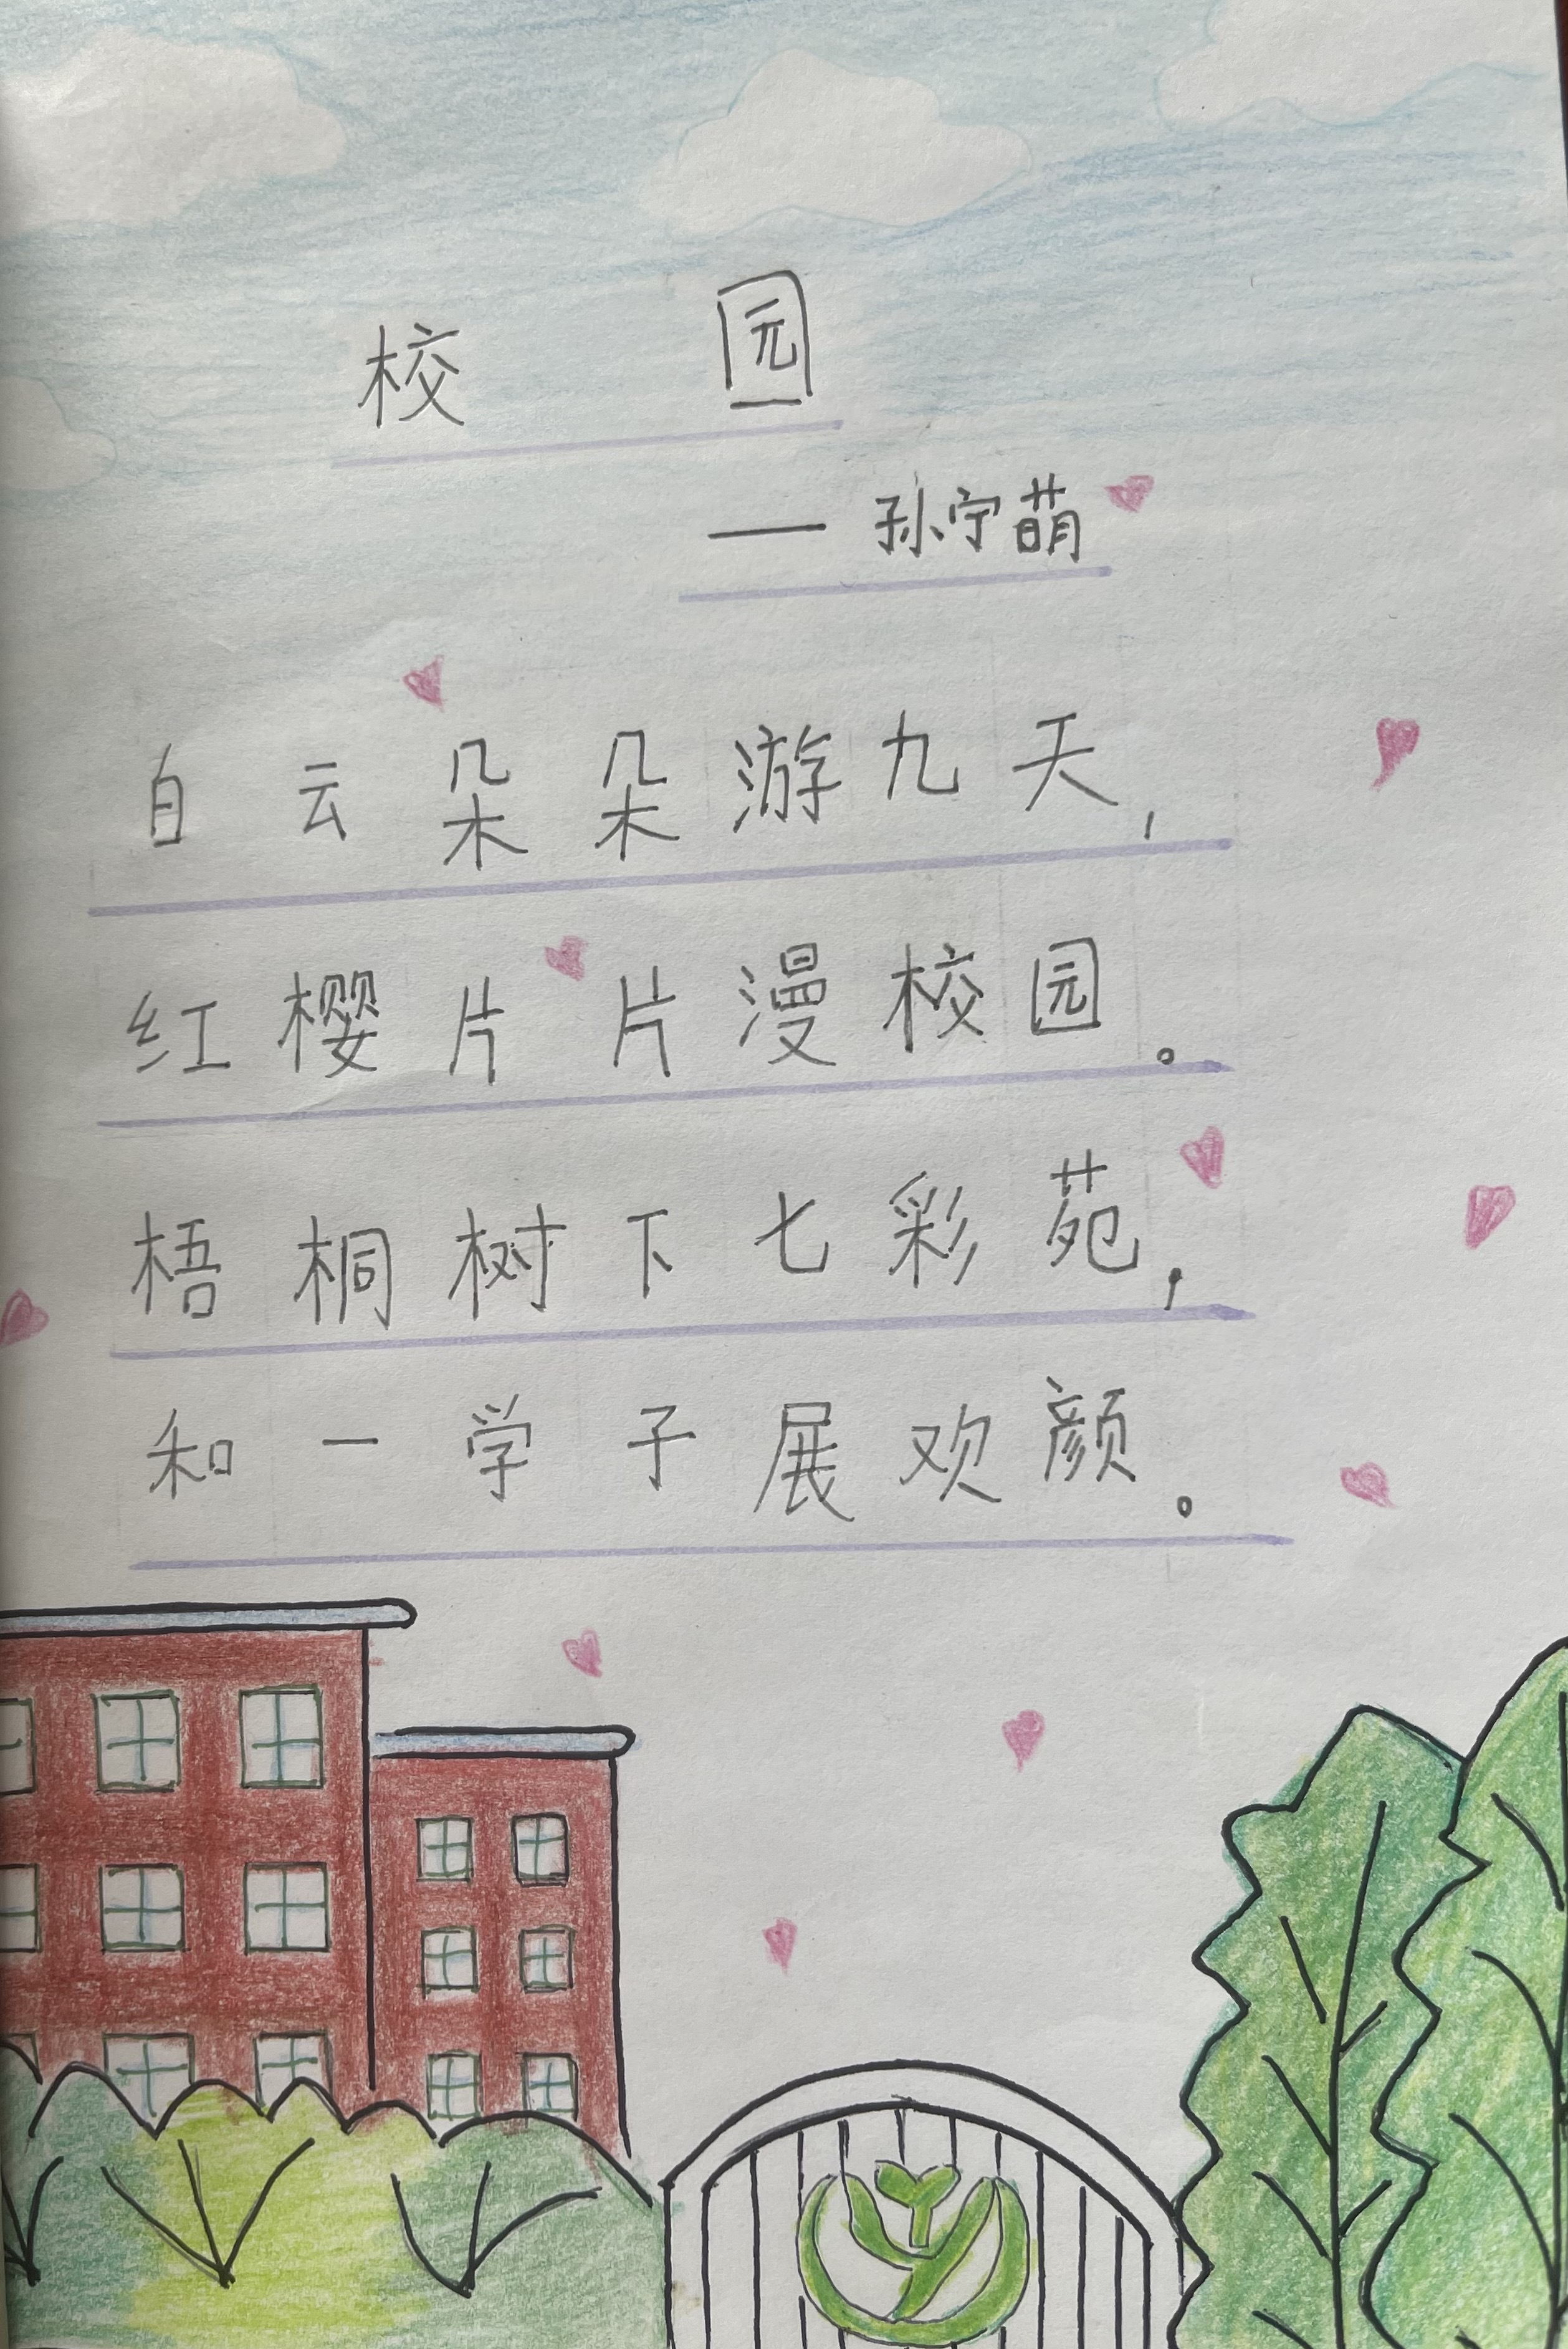 校园
——孙宁萌
白云朵朵游九天，
红樱片片漫校园。
梧桐树下七彩苑，
和一学子展欢颜。